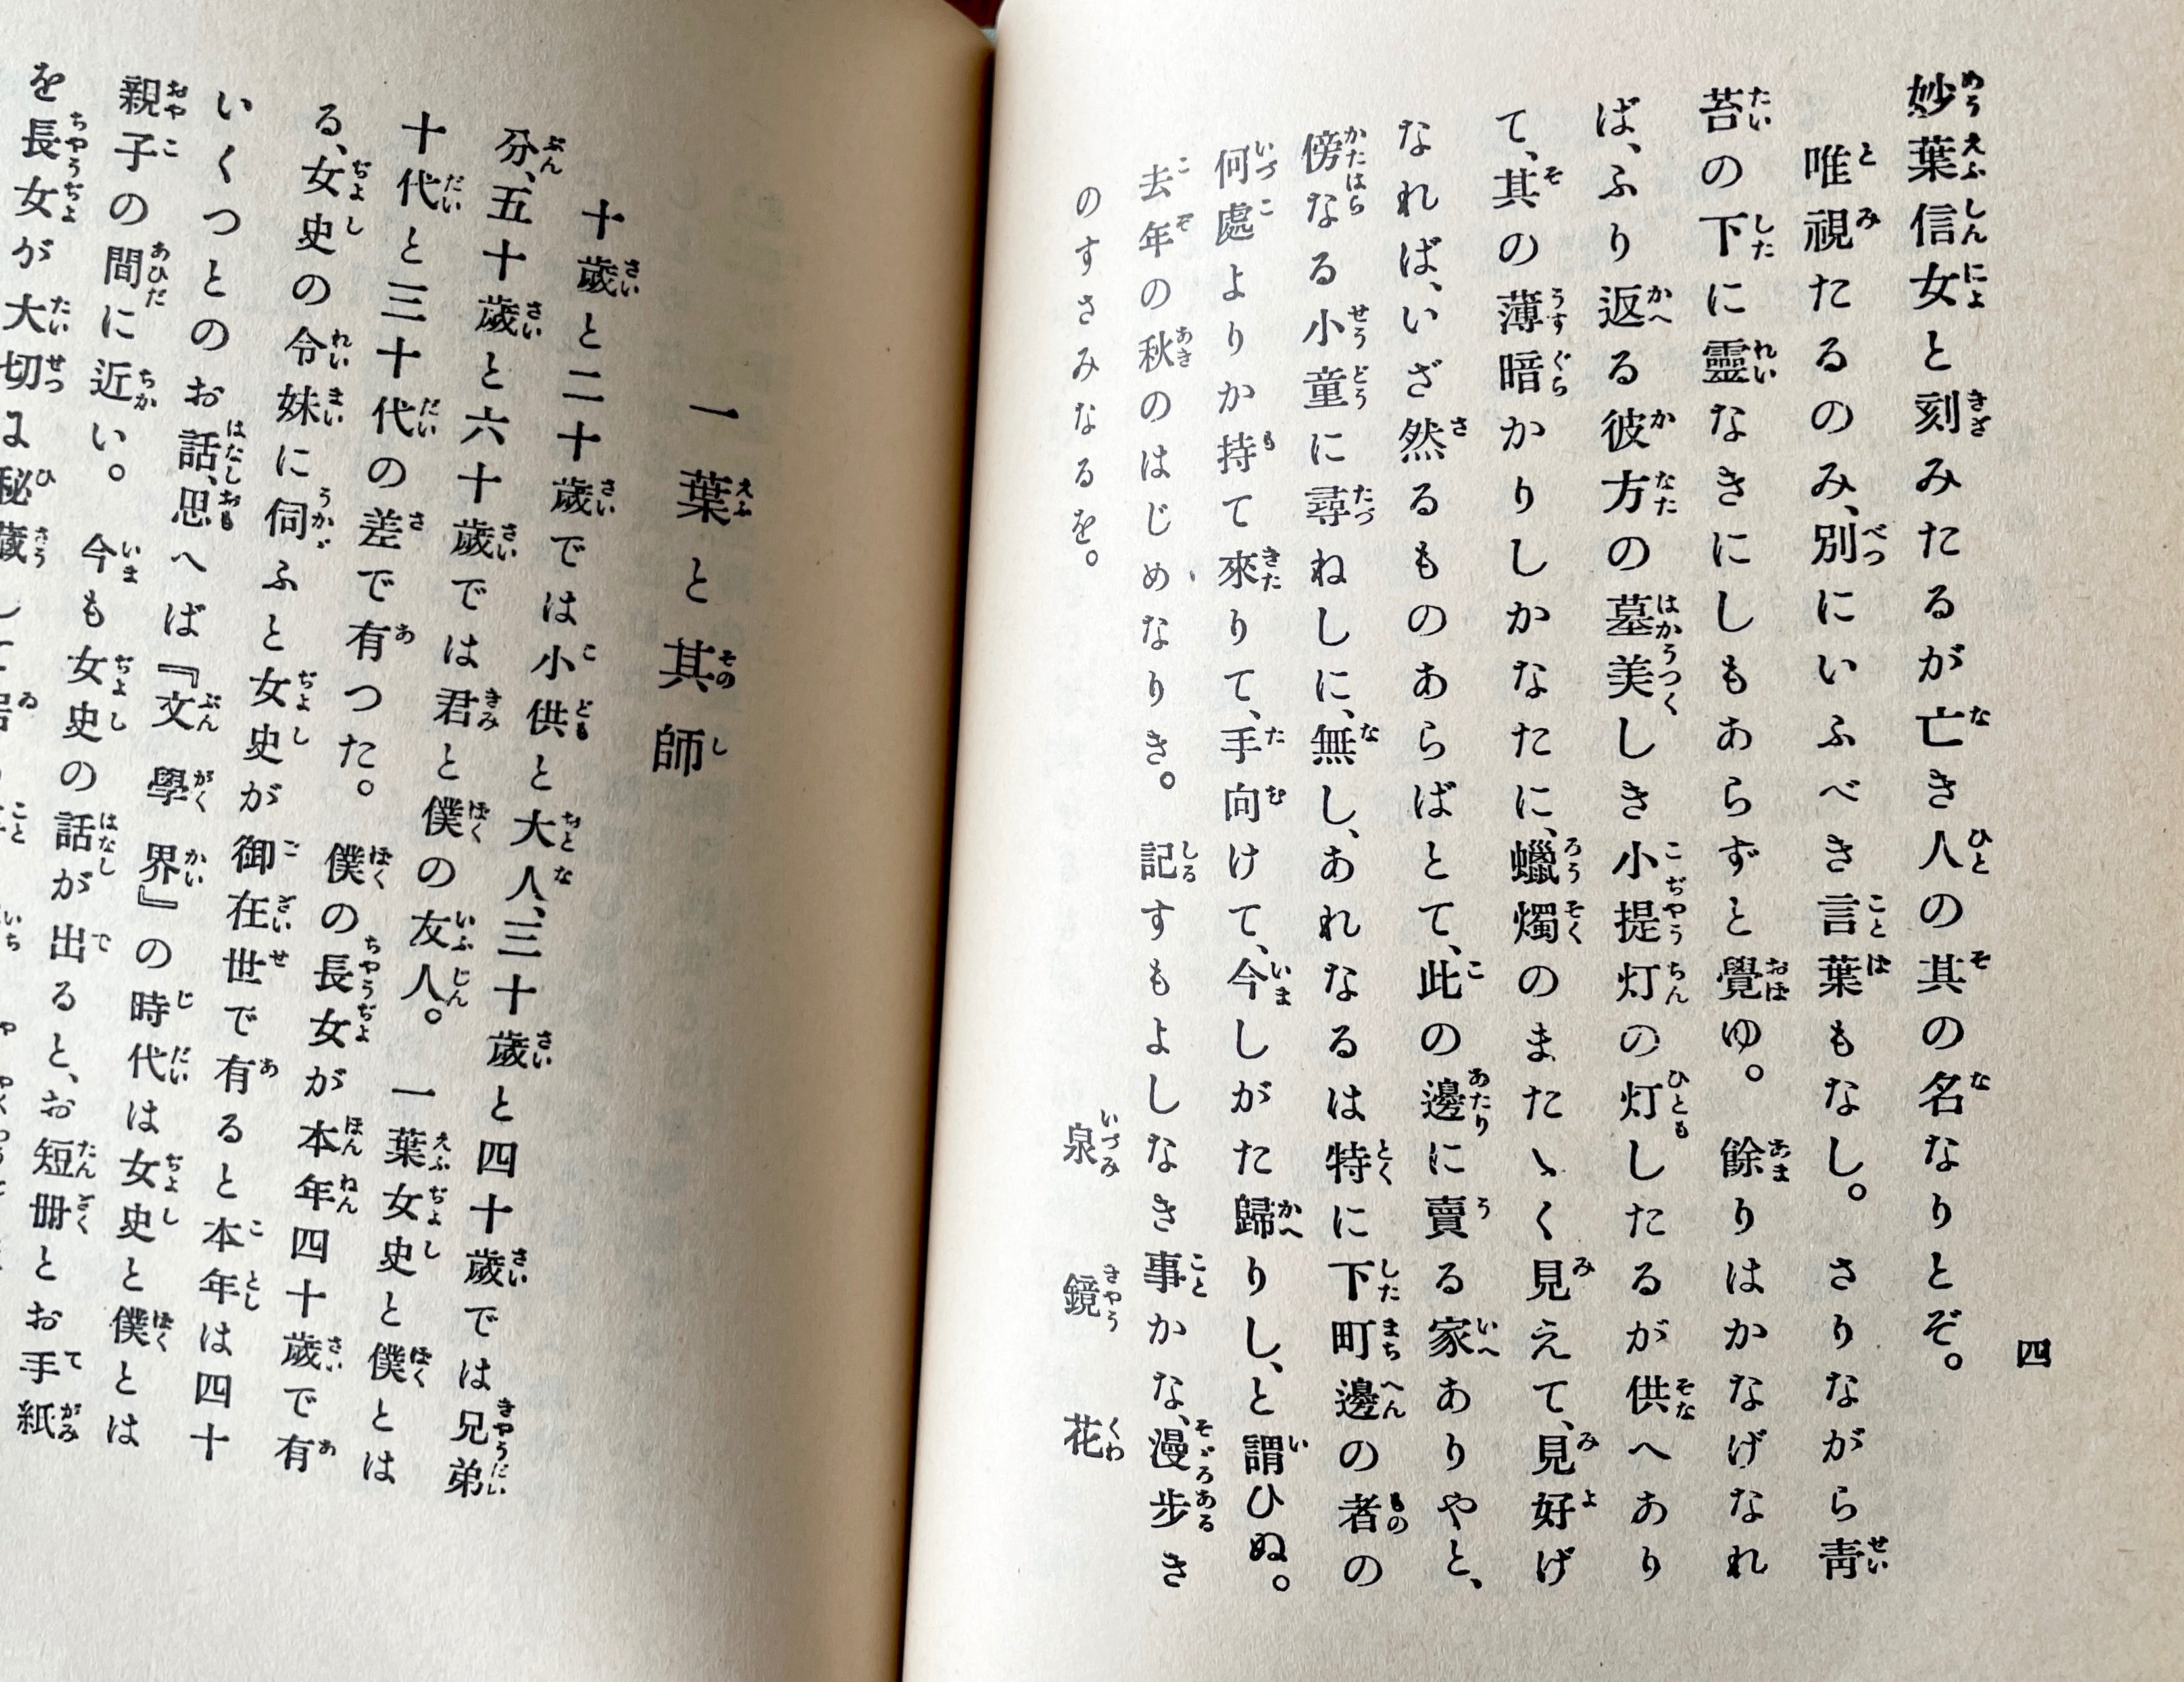 四
妙葉信女と刻みたるが亡き人の其の名なりとぞ。
唯視たるのみ、別にいふべき言葉もなし。さりながら靑
苔の下に靈なきにしもあらずと覺ゆ。餘りはかなげなれ
ば、ふり返る彼方の墓美しき小提灯の灯したるが供へあり
て、其の薄暗かりしかなたに、蠟燭のまたゝく見えて、見好げ
なれば、いざ然るものあらばとて、此の邊に賣る家ありやと、
傍なる小童に尋ねしに、無し、あれなるは特に下町邊の者の
何處よりか持て來りて、手向けて、今しがた歸りし、と謂ひぬ。
去年の秋のはじめなりき。記すもよしなき事かな、漫步き
のすさみなるを。
泉鏡花
一葉と其師
十歲と二十歲では小供と大人、三十歲と四十歲では兄弟
分、五十歲と六十歲では君と僕の友人。一葉女史と僕とは
十代と三十代の差で有つた。僕の長女が本年四十歲で有
る、女史の令妹に伺ふと女史が御在世で有ると本年は四十
いくつとのお話、思へば『文學界』の時代は女史と僕とは
親子の間に近い。今も女史の話が出ると、お短册とお手紙
を長女が大切